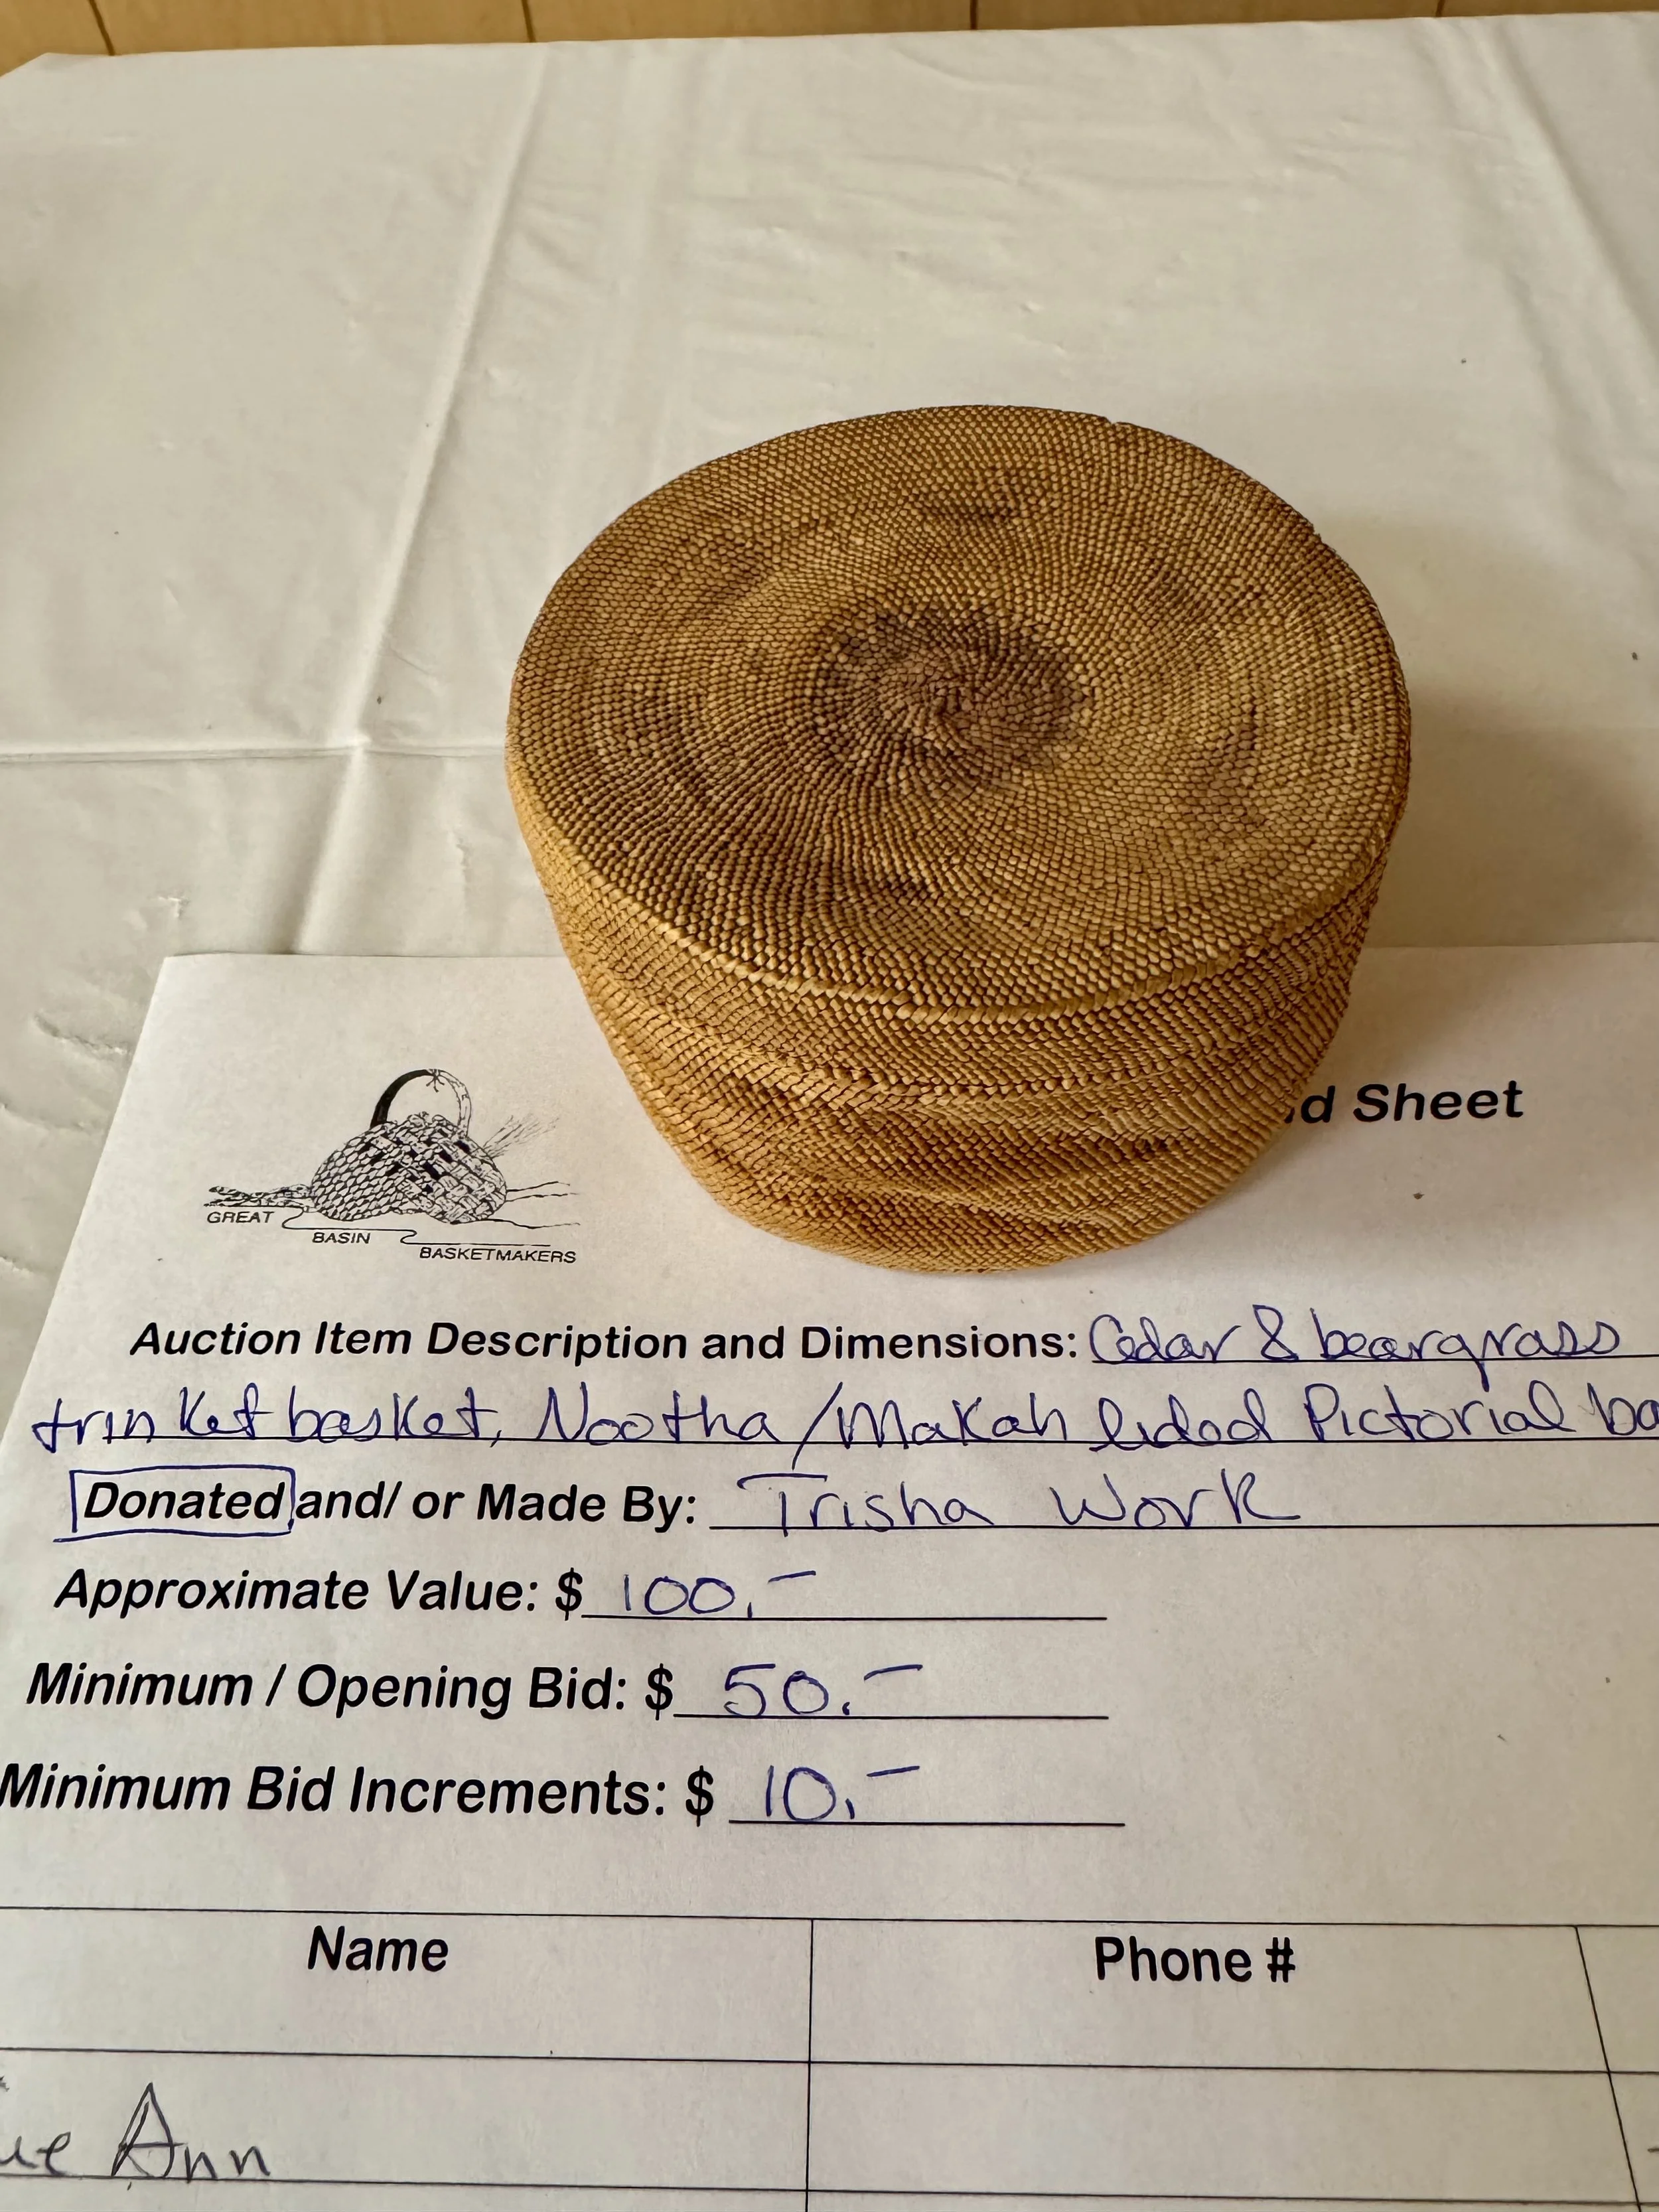 d Sheet
GREAT
BASIN
BASKETMAKERS
Auction Item Description and Dimensions: Cedar & beargrass
trinket basket, Nootha/Makah lided Pictorial ba
Donated and/ or Made By: Trisha Work
Approximate Value: $ 100.-
Minimum / Opening Bid: $ 50.-
Minimum Bid Increments: $ 10.-
Name Phone #
ue Ann